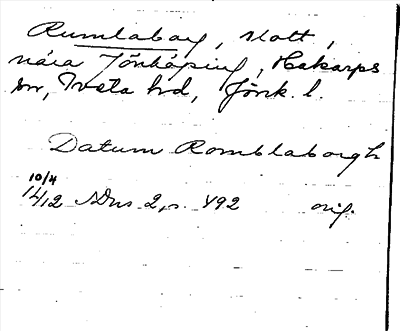 Rumlaborg, slott,
nära Jönköping, Hakarps
sn, Tveta hd, Jönk. l.
Datum Romblaborgh
10/4
1412 SDns 2, s. 492 orig.